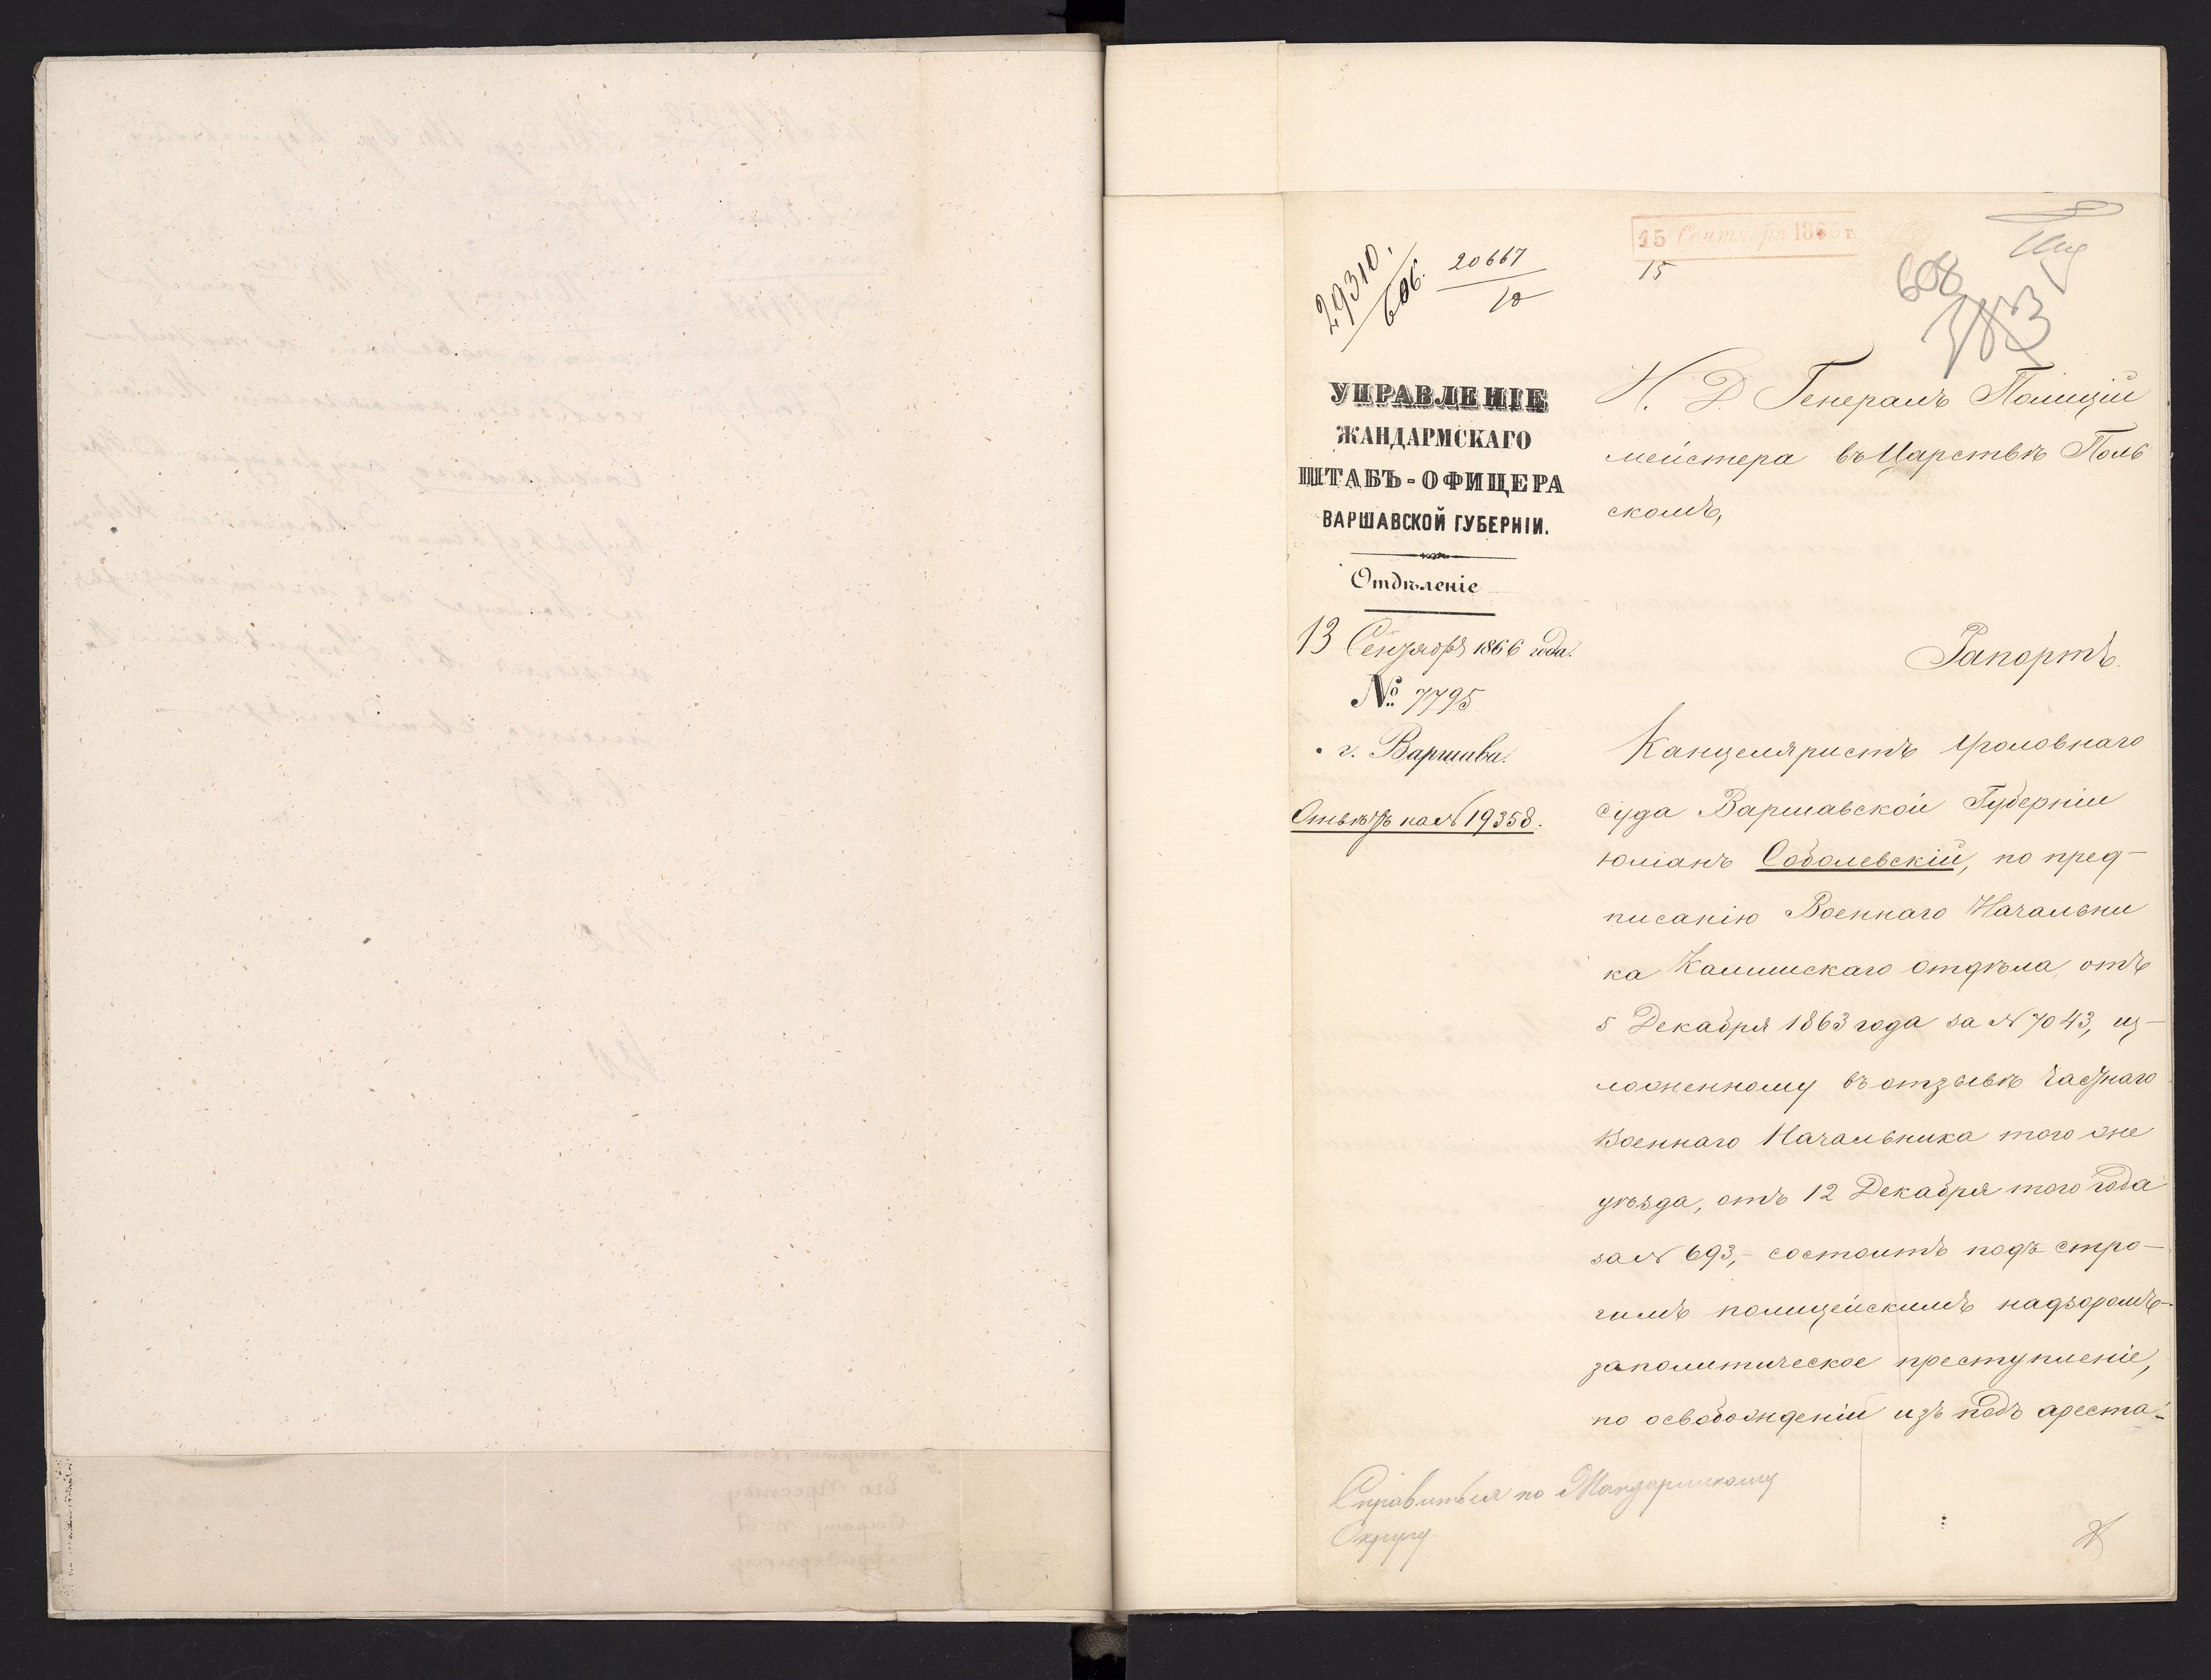 15 Сентября 1866 г.
15
29310.
606.
20667
12
608
383
УПРАВЛЕНІЕ
ЖАНДАРМСКАГО
ШТАБЪ-ОФИЦЕРА
ВАРШАВСКОЙ ГУБЕРНІИ.
Отдѣленіе
13 Сентября 1866 года.
№ 7795
г. Варшава.
Отвѣтъ на № 19358.
И. Д. Генералъ Полиціи
мейстера въ Царствѣ Поль
скомъ,
Рапортъ.
Канцеляристъ Уголовнаго
суда Варшавской Губерніи
Юліанъ Соболевскій, по пред-
писанію Военнаго Начальни
ка Калишскаго отдѣла, отъ
5 Декабря 1863 года за № 7043, из-
ложенному въ отзывѣ Частнаго
Военнаго Начальника того же
уѣзда, отъ 12 Декабря того года
за № 693,- состоитъ подъ стро-
гимъ полицейскимъ надзоромъ-
за политическое преступленіе,
по освобожденіи изъ подъ ареста-
Справиться по Жандармскому
Округу.